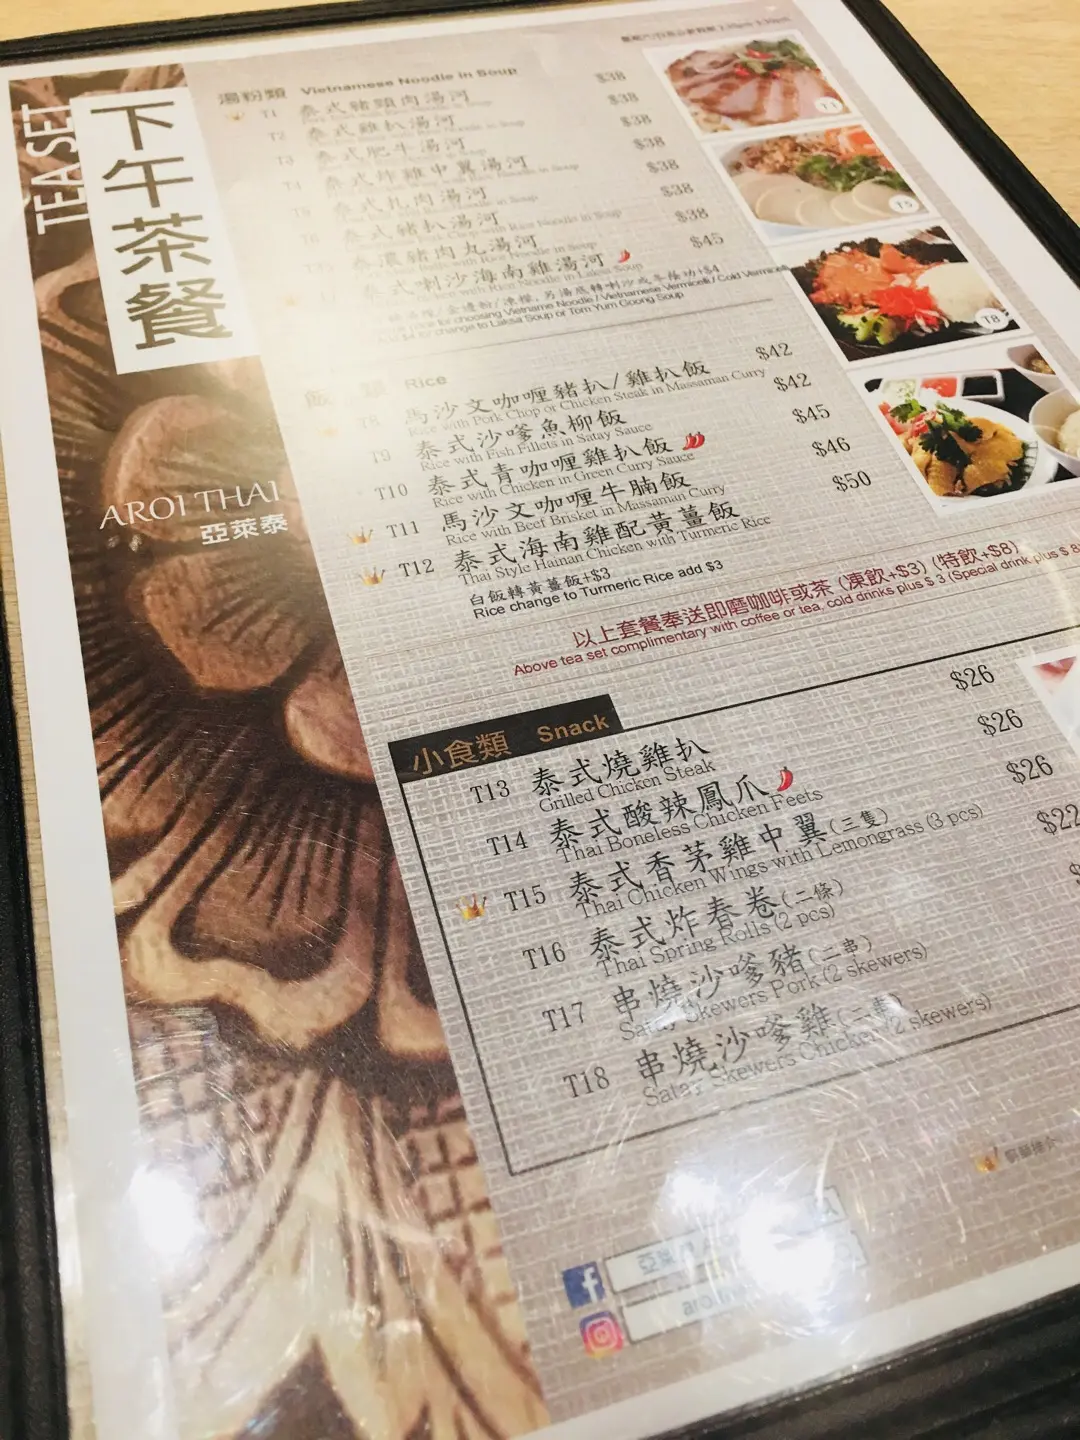 TEA SET
下午茶餐
AROI THAI
亞萊泰
湯粉類 Vietnamese Noodle in Soup
T1 泰式豬頸肉湯河 $38
T2 泰式雞扒湯河 $38
T3 泰式肥牛湯河 $38
T4 泰式炸雞中翼湯河 $38
泰式扎肉湯河 $38
T6 泰式豬扒湯河 $38
with Rice Noodle in Soup
泰濃豬肉丸湯河
with Rice Noodle in Soup
泰式喇沙海南雞湯河 $45
with Rice Noodle in Laksa Soup
for choosing Vietname Noodle / Vietnamese Vermicelli / Cold Vermicelli
to change to Laksa Soup or Tom Yum Goong Soup
飯類 Rice
T8 馬沙文咖喱豬扒/雞扒飯 $42
Rice with Pork Chop or Chicken Steak in Massaman Curry
T9 泰式沙嗲魚柳飯 $42
Rice with Fish Fillets in Satay Sauce
T10 泰式青咖喱雞扒飯 $45
Rice with Chicken in Green Curry Sauce
T11 馬沙文咖喱牛腩飯 $46
Rice with Beef Brisket in Massaman Curry
T12 泰式海南雞配黃薑飯 $50
Thai Style Hainan Chicken with Turmeric Rice
白飯轉黃薑飯+$3
Rice change to Turmeric Rice add $3
以上套餐奉送即磨咖啡或茶 (凍飲+$3) (特飲+$8)
Above tea set complimentary with coffee or tea, cold drinks plus $ 3 (Special drink plus $ 8
小食類 Snack
T13 泰式燒雞扒 $26
Grilled Chicken Steak
T14 泰式酸辣鳳爪 $26
Thai Boneless Chicken Feets
T15 泰式香茅雞中翼(三隻) $26
Thai Chicken Wings with Lemongrass (3 pcs)
T16 泰式炸春卷(二條) $22
Thai Spring Rolls (2 pcs)
T17 串燒沙嗲豬(二串)
Satay Skewers Pork (2 skewers)
T18 串燒沙嗲雞(二隻)
Satay Skewers Chicken (2 skewers)
T1
T5
T8
f